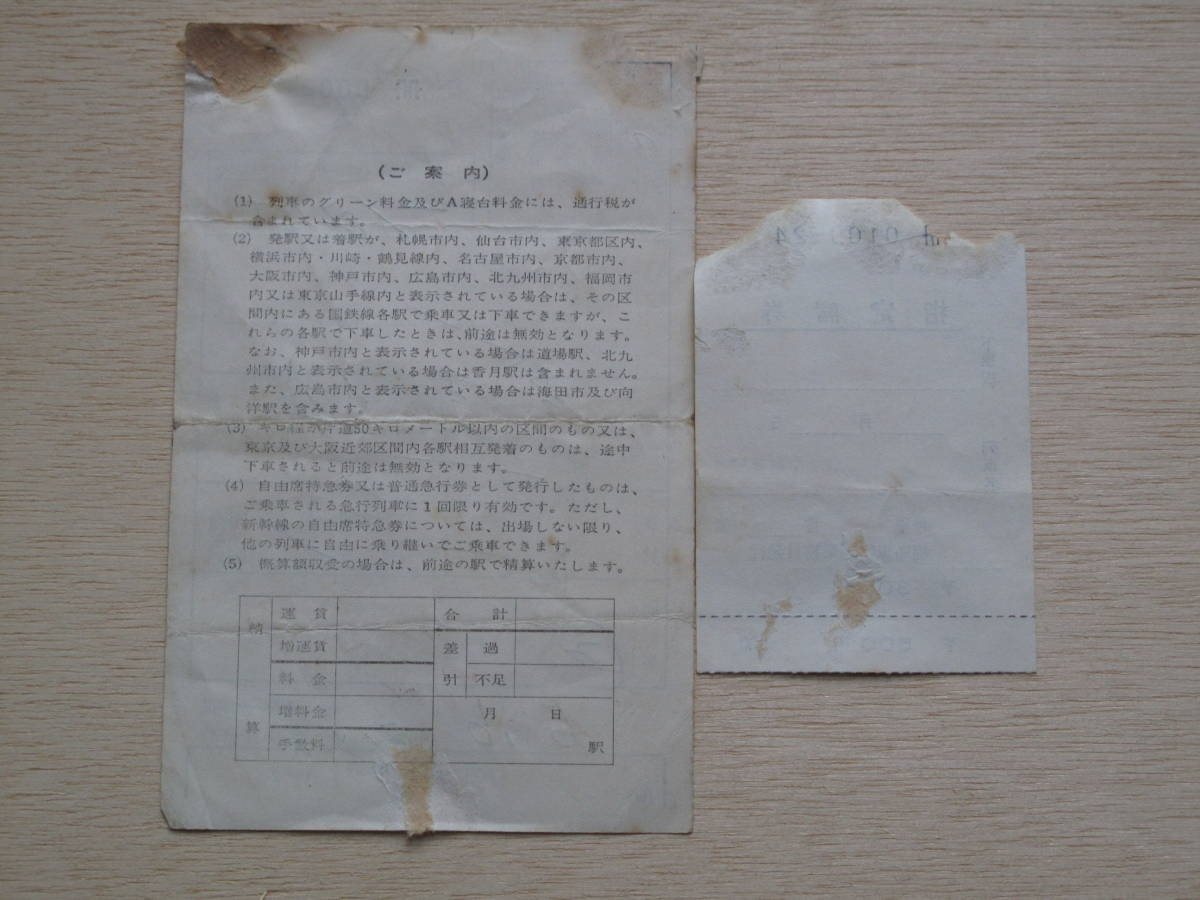 (ご案内)
(1) 列車のグリーン料金及びA寝台料金には、通行税が
含まれています。
(2) 発駅又は着駅が、札幌市内、仙台市内、東京都区内、
横浜市内・川崎・鶴見線内、名古屋市内、京都市内、
大阪市内、神戸市内、広島市内、北九州市内、福岡市
内又は東京山手線内と表示されている場合は、その区
間内にある国鉄線各駅で乗車又は下車できますが、こ
れらの各駅で下車したときは、前途は無効となります。
なお、神戸市内と表示されている場合は道場駅、北九
州市内と表示されている場合は香月駅は含まれません。
また、広島市内と表示されている場合は海田市及び向
洋駅を含みます。
(3) キロ程が片道50キロメートル以内の区間のもの又は、
東京及び大阪近郊区間内各駅相互発着のものは、途中
下車されると前途は無効となります。
(4) 自由席特急券又は普通急行券として発行したものは、
ご乗車される急行列車に1回限り有効です。ただし、
新幹線の自由席特急券については、出場しない限り、
他の列車に自由に乗り継いでご乗車できます。
(5) 概算額収受の場合は、前途の駅で精算いたします。
精算
運賃 合計
増運賃 差引 過
料金 不足
増料金 月 日
手数料 駅